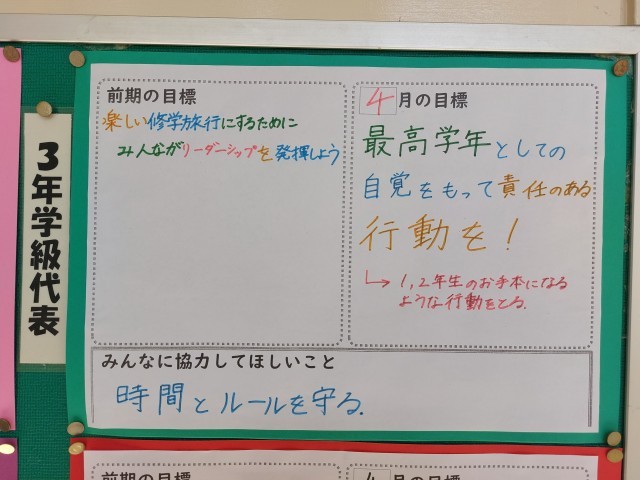 3年学級代表
前期の目標
楽しい修学旅行にするために
みんながリーダーシップを発揮しよう
4月の目標
最高学年としての
自覚をもって責任のある
行動を!
↳ 1,2年生のお手本になる
ような行動をとる.
みんなに協力してほしいこと
時間とルールを守る.
前期の目標
4月の目標